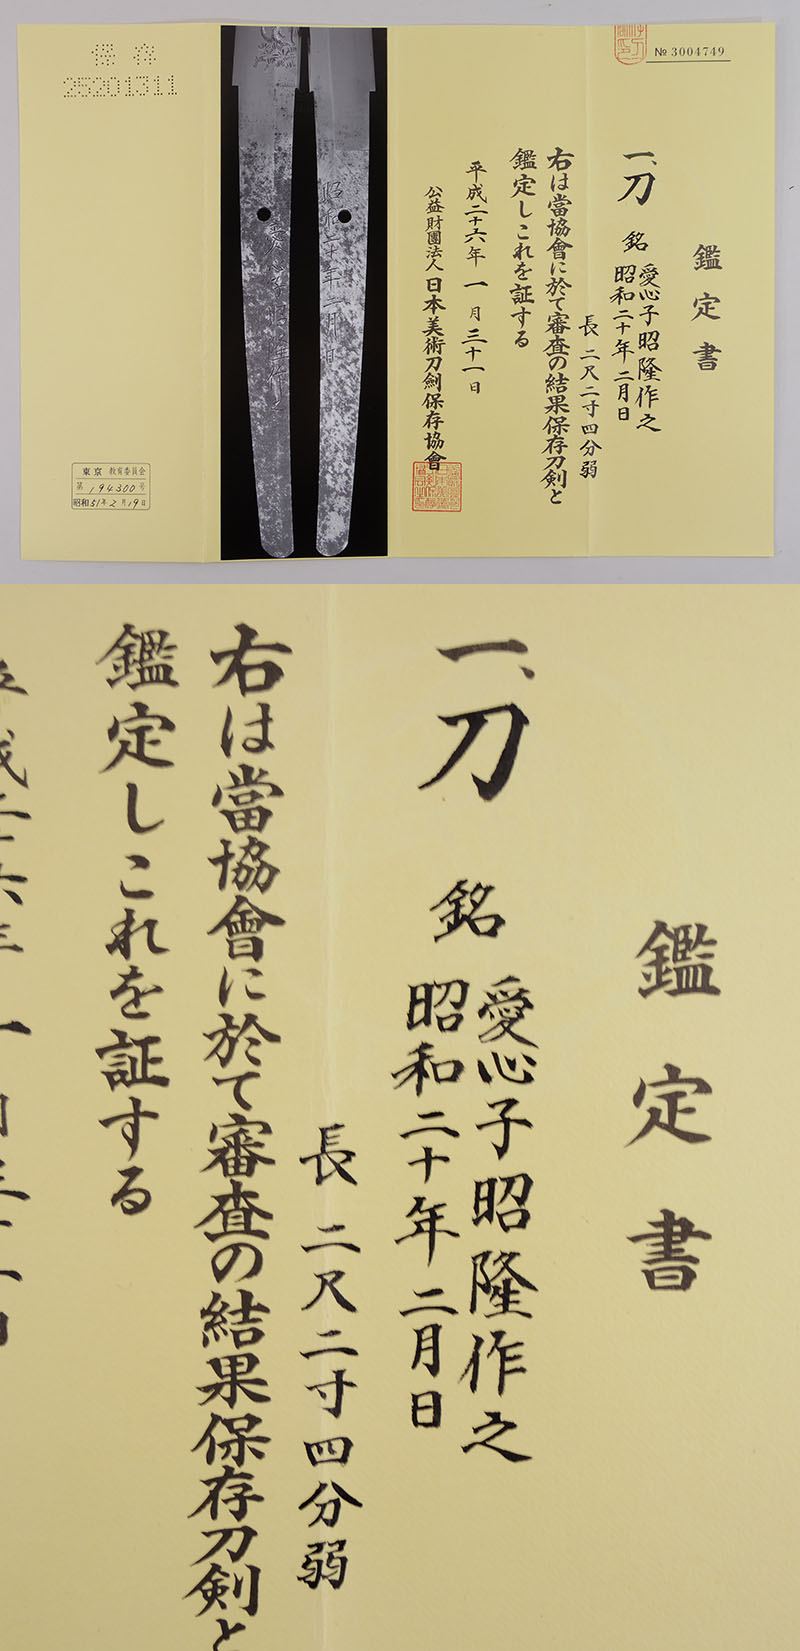 鑑定書
一、刀 銘 愛心子昭隆作之
昭和二十年二月日
長 二尺二寸四分弱
右は當協會に於て審査の結果保存刀剣と
鑑定しこれを証する
平成二十六年一月三十一日
公益財團法人日本美術刀劍保存協會
№ 3004749
昭和二十年二月日
愛心子昭隆作之
保存
25201311
東京 教育委員会
第 194300 号
昭和51年2月19日
鑑定書
一、刀 銘 愛心子昭隆作之
昭和二十年二月日
長 二尺二寸四分弱
右は當協會に於て審査の結果保存刀剣と
鑑定しこれを証する
平成二十六年一月三十一日